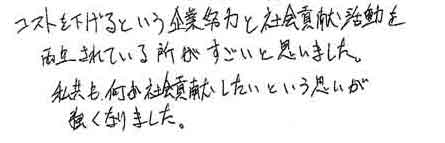 コストを下げるという企業努力と社会貢献活動を
両立されている所がすごいと思いました。
私共も何か社会貢献したいという思いが
強くなりました。